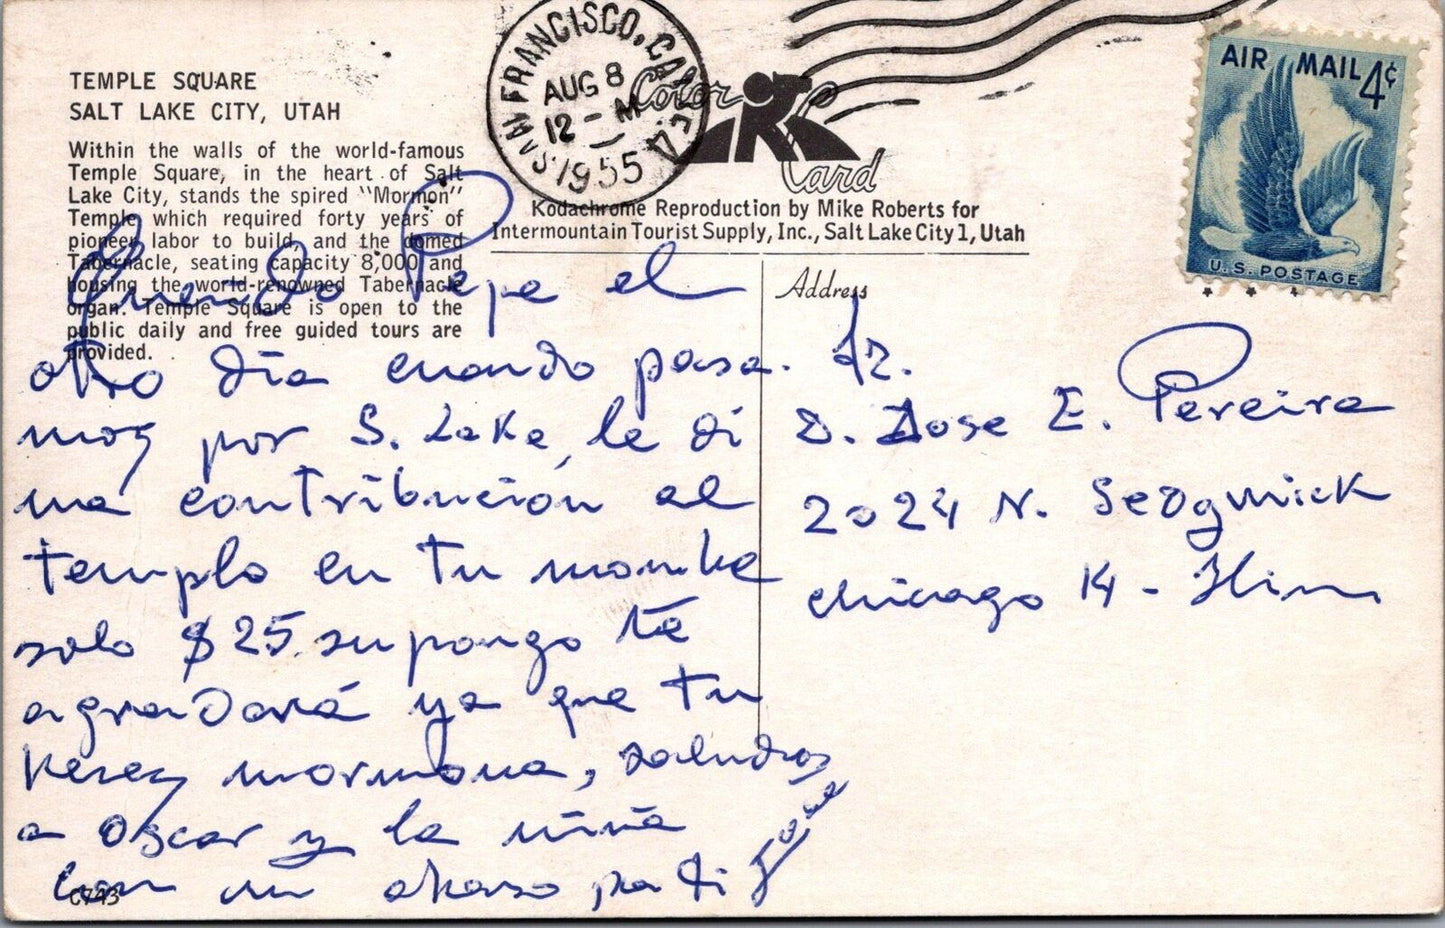 TEMPLE SQUARE
SALT LAKE CITY, UTAH
Within the walls of the world-famous
Temple Square, in the heart of Salt
Lake City, stands the spired "Mormon"
Temple which required forty years of
pioneer labor to build, and the domed
Tabernacle, seating capacity 8,000 and
housing the world-renowned Tabernacle
organ. Temple Square is open to the
public daily and free guided tours are
provided.
SAN FRANCISCO, CALIF.
AUG 8
12 - M
1955
Color
Card
Kodachrome Reproduction by Mike Roberts for
Intermountain Tourist Supply, Inc., Salt Lake City 1, Utah
AIR MAIL 4¢
U. S. POSTAGE
Querido Pepe el
otro día cuando pasa-
mos por S. Lake, le di
una contribución al
templo en tu nombre
solo $25. supongo te
agradará ya que tu
eres mormona, saludos
a Oscar y la niña
un para ti
Jose
C743
Address
Sr.
D. Jose E. Pereira
2024 N. Sedgwick
Chicago 14 -